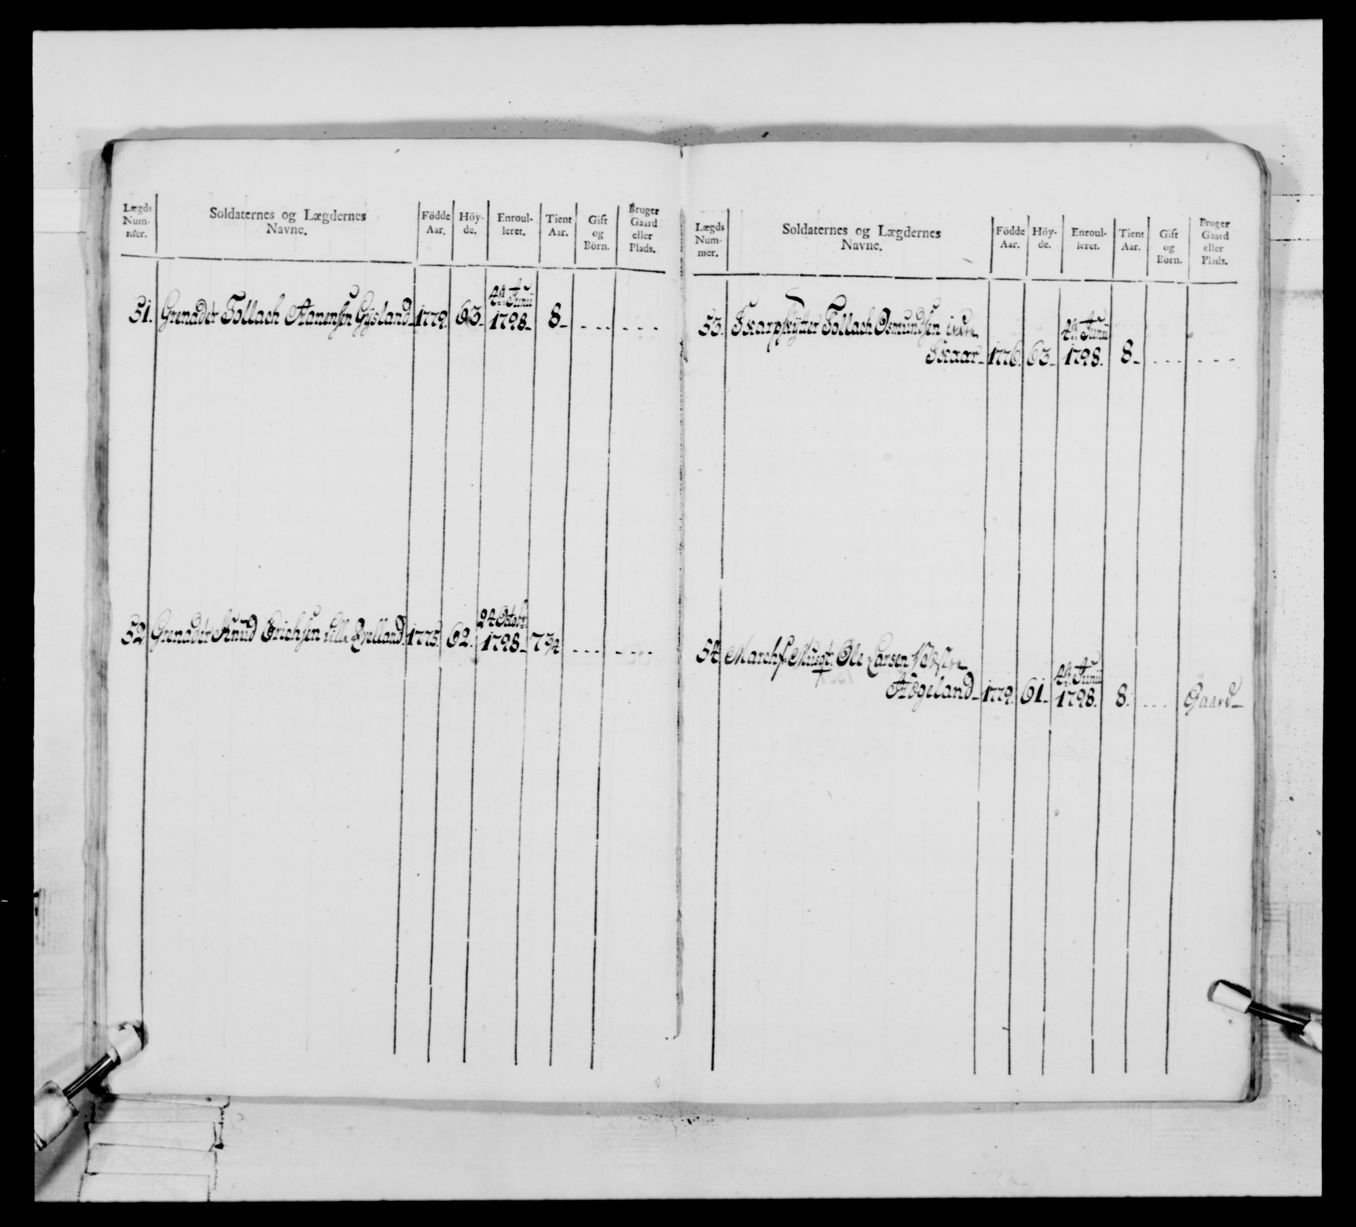 Lægds Num-mer.	Soldaternes og Lægdernes Navne.	Födde Aar.	Höy-de.	Enroul-leret.	Tient Aar.	Gift og Börn.	Bruger Gaard eller Plads.
4de Junii
51.	Grenadér Tollach Aanensen Gysland	1779.	63.	1798.	8.
24 Octobr
52	Grenadér Knud Erichsen Lille Qvelland	1775.	62.	1798.	7 3/4
Lægds Num-mer.	Soldaternes og Lægdernes Navne.	Födde Aar.	Höy-de.	Enroul-leret.	Tient Aar.	Gift og Börn.	Bruger Gaard eller Plads.
53.	Skarpskytter Tollach Osmundsen	4de Junii
Skaar	1776	63.	1798.	8.
54.	Marchf. Musqt. Ole Larsen	4de Junii
Ageland	1779.	61.	1798.	8.	Gaard